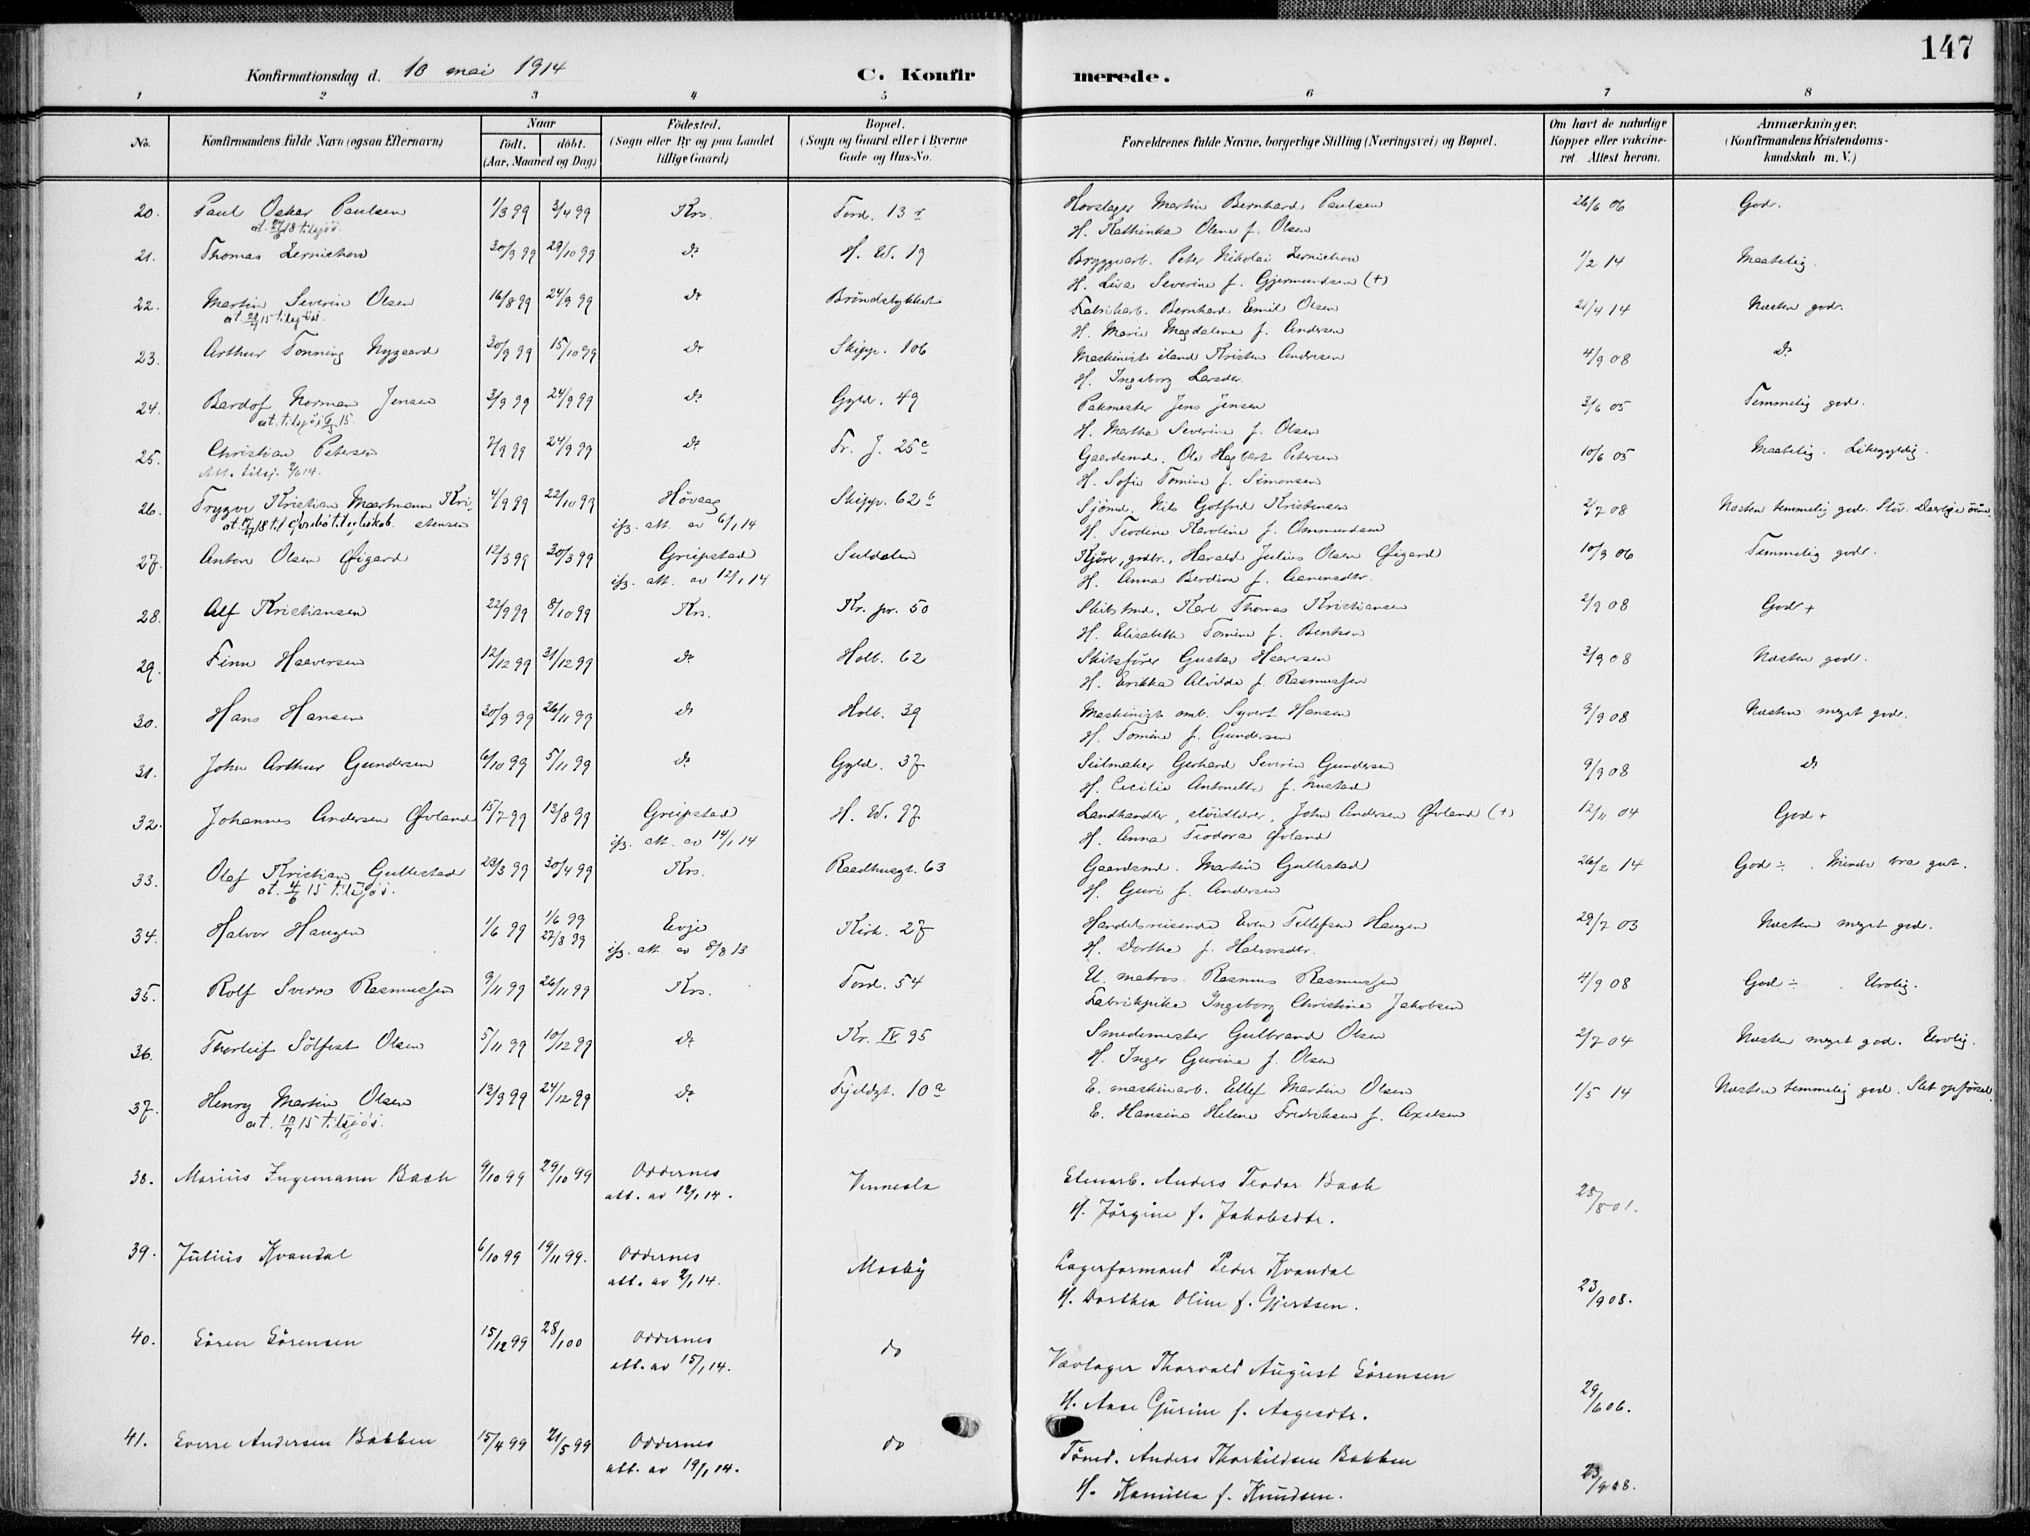 147
Konfirmationsdag d. 10 mai 1914
C. Konfirmerede.
1 2 3 4 5 6 7 8
No. Konfirmandens fulde Navn (ogsaa Efternavn) Naar født. døbt. (Aar, Maaned og Dag) Födested. (Sogn eller By og paa Landet tillige Gaard) Bopæl. (Sogn og Gaard eller i Byerne Gade og Hus-No. Forældrenes fulde Navne, borgerlige Stilling (Næringsvei) og Bopæl. Om havt de naturlige Kopper eller vakcineret. Attest herom. Anmærkninger. (Konfirmandens Kristendomskundskab m. V.)
20. Paul Oskar Paulsen 1/3 99 3/4 99 Krs. Tord. 13 Hovslager Martin Bernhard Paulsen 26/6 06 God.
H. Kathinka Olene f. Olsen
21. Thomas Zernichow 30/9 99 29/10 99 do H. W. 19 Bryggearb. Peter Nikolai Zernichow 1/2 14 Maatelig.
H. Lisa Severine f. Gjermundsen (+)
22. Martin Severin Olsen 16/8 99 24/9 99 do Bröndstykket Fabrikarb. Bernhard Emil Olsen 21/4 14 Næsten god.
at. 28/4 15 til sjös. H. Marie Magdalene f. Andersen
23. Arthur Tonning Nygaard 30/9 99 15/10 99 do Skipp. 106 Maskinist iland Kristen Andersen 4/9 08 do
H. Ingeborg Larsdtr.
24. Bardof Norman Jensen 3/9 99 24/9 99 do Gyld. 49 Pakmester Jens Jensen 3/6 05 Temmelig god.
H. Martha Severine f. Olsen
25. Christian Petersen 7/9 99 24/9 99 do Fr. J. 25 Gaardsmd. Ole Hagbart Petersen 10/6 05 Maatelig. Likegyldig.
H. Sofie Tomine f. Simonsen
26. Trygve Kristian Martmann Kristensen 4/9 99 22/10 99 Høvaag Skipp. 62 b Sjömd. Nils Gotfred Kristensen 2/7 08 Næsten temmelig god. Sløv.
ifg. att. av 6/1 14 H. Teodine Karoline f. Ommundsen
27. Anton Olsen Øigard 12/3 99 30/3 99 Greipstad Suldalen Kjörer, grdbr., Harald Julius Olsen Øigard 10/9 06 Temmelig god.
ifg. att. av 12/1 14 H. Anna Berdine f. Aanensdtr.
28. Alf Kristiansen 22/9 99 8/10 99 Krs. Kr. pr. 50 Skibstmd. Karl Thomas Kristiansen 2/9 08 God +
H. Elisabeth Tomine f. Bentsen
29. Finn Haaversen 12/12 99 31/12 99 do Holb. 62 Skibsförer Gustav Haaversen 3/9 08 Næsten god.
H. Erikka Alvilda f. Rasmussen
30. Hans Hansen 30/9 99 26/11 99 do Holb. 39 Maskinist omb. Syvert Hansen 9/9 08 Næsten meget god.
H. Tomine f. Gundersen
31. John Arthur Gundersen 6/10 99 5/11 99 do Gyld. 37 Seilmaker Gerhard Severin Gundersen 9/9 08 do
H. Cecilie Antonette f. Nustad
32. Johannes Andersen Øvland 15/7 99 13/8 99 Greipstad H. W. 97 Landhandler, John Andersen Øvland (+) 12/11 04 God +
ifg. att. av 14/1 14 H. Anna Teodora Øvland
33. Olaf Kristian Gullestad 23/3 99 30/4 99 Krs. Raadhusgt. 63 Gaardsmd. Martin Gullestad 26/2 14 God ÷. Mindre bra gut.
at. 4/6 15 til sjös. H. Guri f. Andersen
34. Halvor Haugen 1/6 99 1/6 99 27/8 99 Evje Kirk. 27 Handelsreisende Even Tellefsen Haugen 29/7 03 Næsten meget god.
ifg. att. av 8/8 13 H. Dorthe f. Halvorsdtr.
35. Rolf Sverre Rasmussen 9/11 99 26/11 99 Krs. Tord. 54 U. matros Rasmus Rasmussen 4/9 08 God ÷. Urolig.
Fabrikpike Ingeborg Christine Jakobsen
36. Thorleif Sölfest Olsen 5/11 99 10/12 99 do Kr. IV 95 Smedemester Gulbrand Olsen 2/7 04 Næsten meget god. Urolig.
H. Inger Gurine f. Olsen
37. Henry Martin Olsen 13/9 99 24/12 99 do Fjeldgt. 10 a E. maskinarb. Ellef Martin Olsen 1/5 14 Næsten temmelig god. Slet opførsel.
at. 10/7 15 til sjös. E. Hansine Helene Fredriksen f. Axelsen
38. Marius Ingemann Bach 9/10 99 29/10 99 Oddernes Vennesla Elevarb. Anders Teodor Bach 28/8 01.
att. av 12/1 14. H. Jörgine f. Jakobsdtr.
39. Julius Kvandal 6/10 99 19/11 99. Oddernes Mosby Lagerformand Peder Kvandal 23/9 08.
att. av 2/1 14. H. Dorthea Oline f. Gjertsen.
40. Sören Sörensen 15/12 99 28/1 00 Oddernes do Thorvald August Sörensen 29/6 06.
att. av 15/1 14. H. Aase Gurine f. Aagesdtr.
41. Sverre Andersen Bakken 15/4 99 21/5 99 Oddernes do Tömd. Anders Thorkildsen Bakken 23/9 08.
att. av 19/1 14. H. Kamilla f. Knudsen.